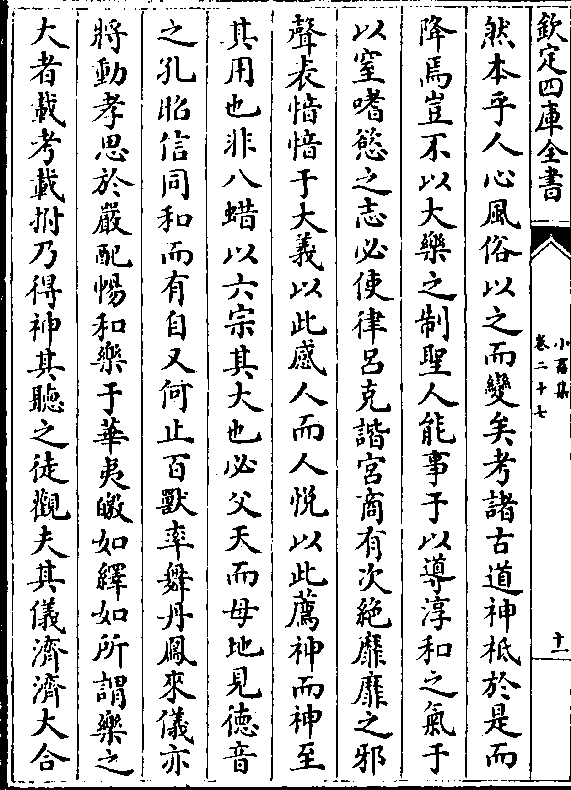 欽定四庫全書
小畜集
卷二十七
十一
然本乎人心風俗以之而變矣考諸古道神祗於是而
降焉豈不以大樂之制聖人能事于以導淳和之氣于
以窒嗜慾之志必使律呂克諧宮商有次絶靡靡之邪
聲表愔愔于大義以此感人而人悅以此薦神而神至
其用也非八蜡以六宗其大也必父天而母地見徳音
之孔昭信同和而有自又何止百獸率舞丹鳳來儀亦
將動孝思於嚴配暢和樂于華夷皦如繹如所謂樂之
大者載考載擊乃得神其聽之徒觀夫其儀濟濟大合